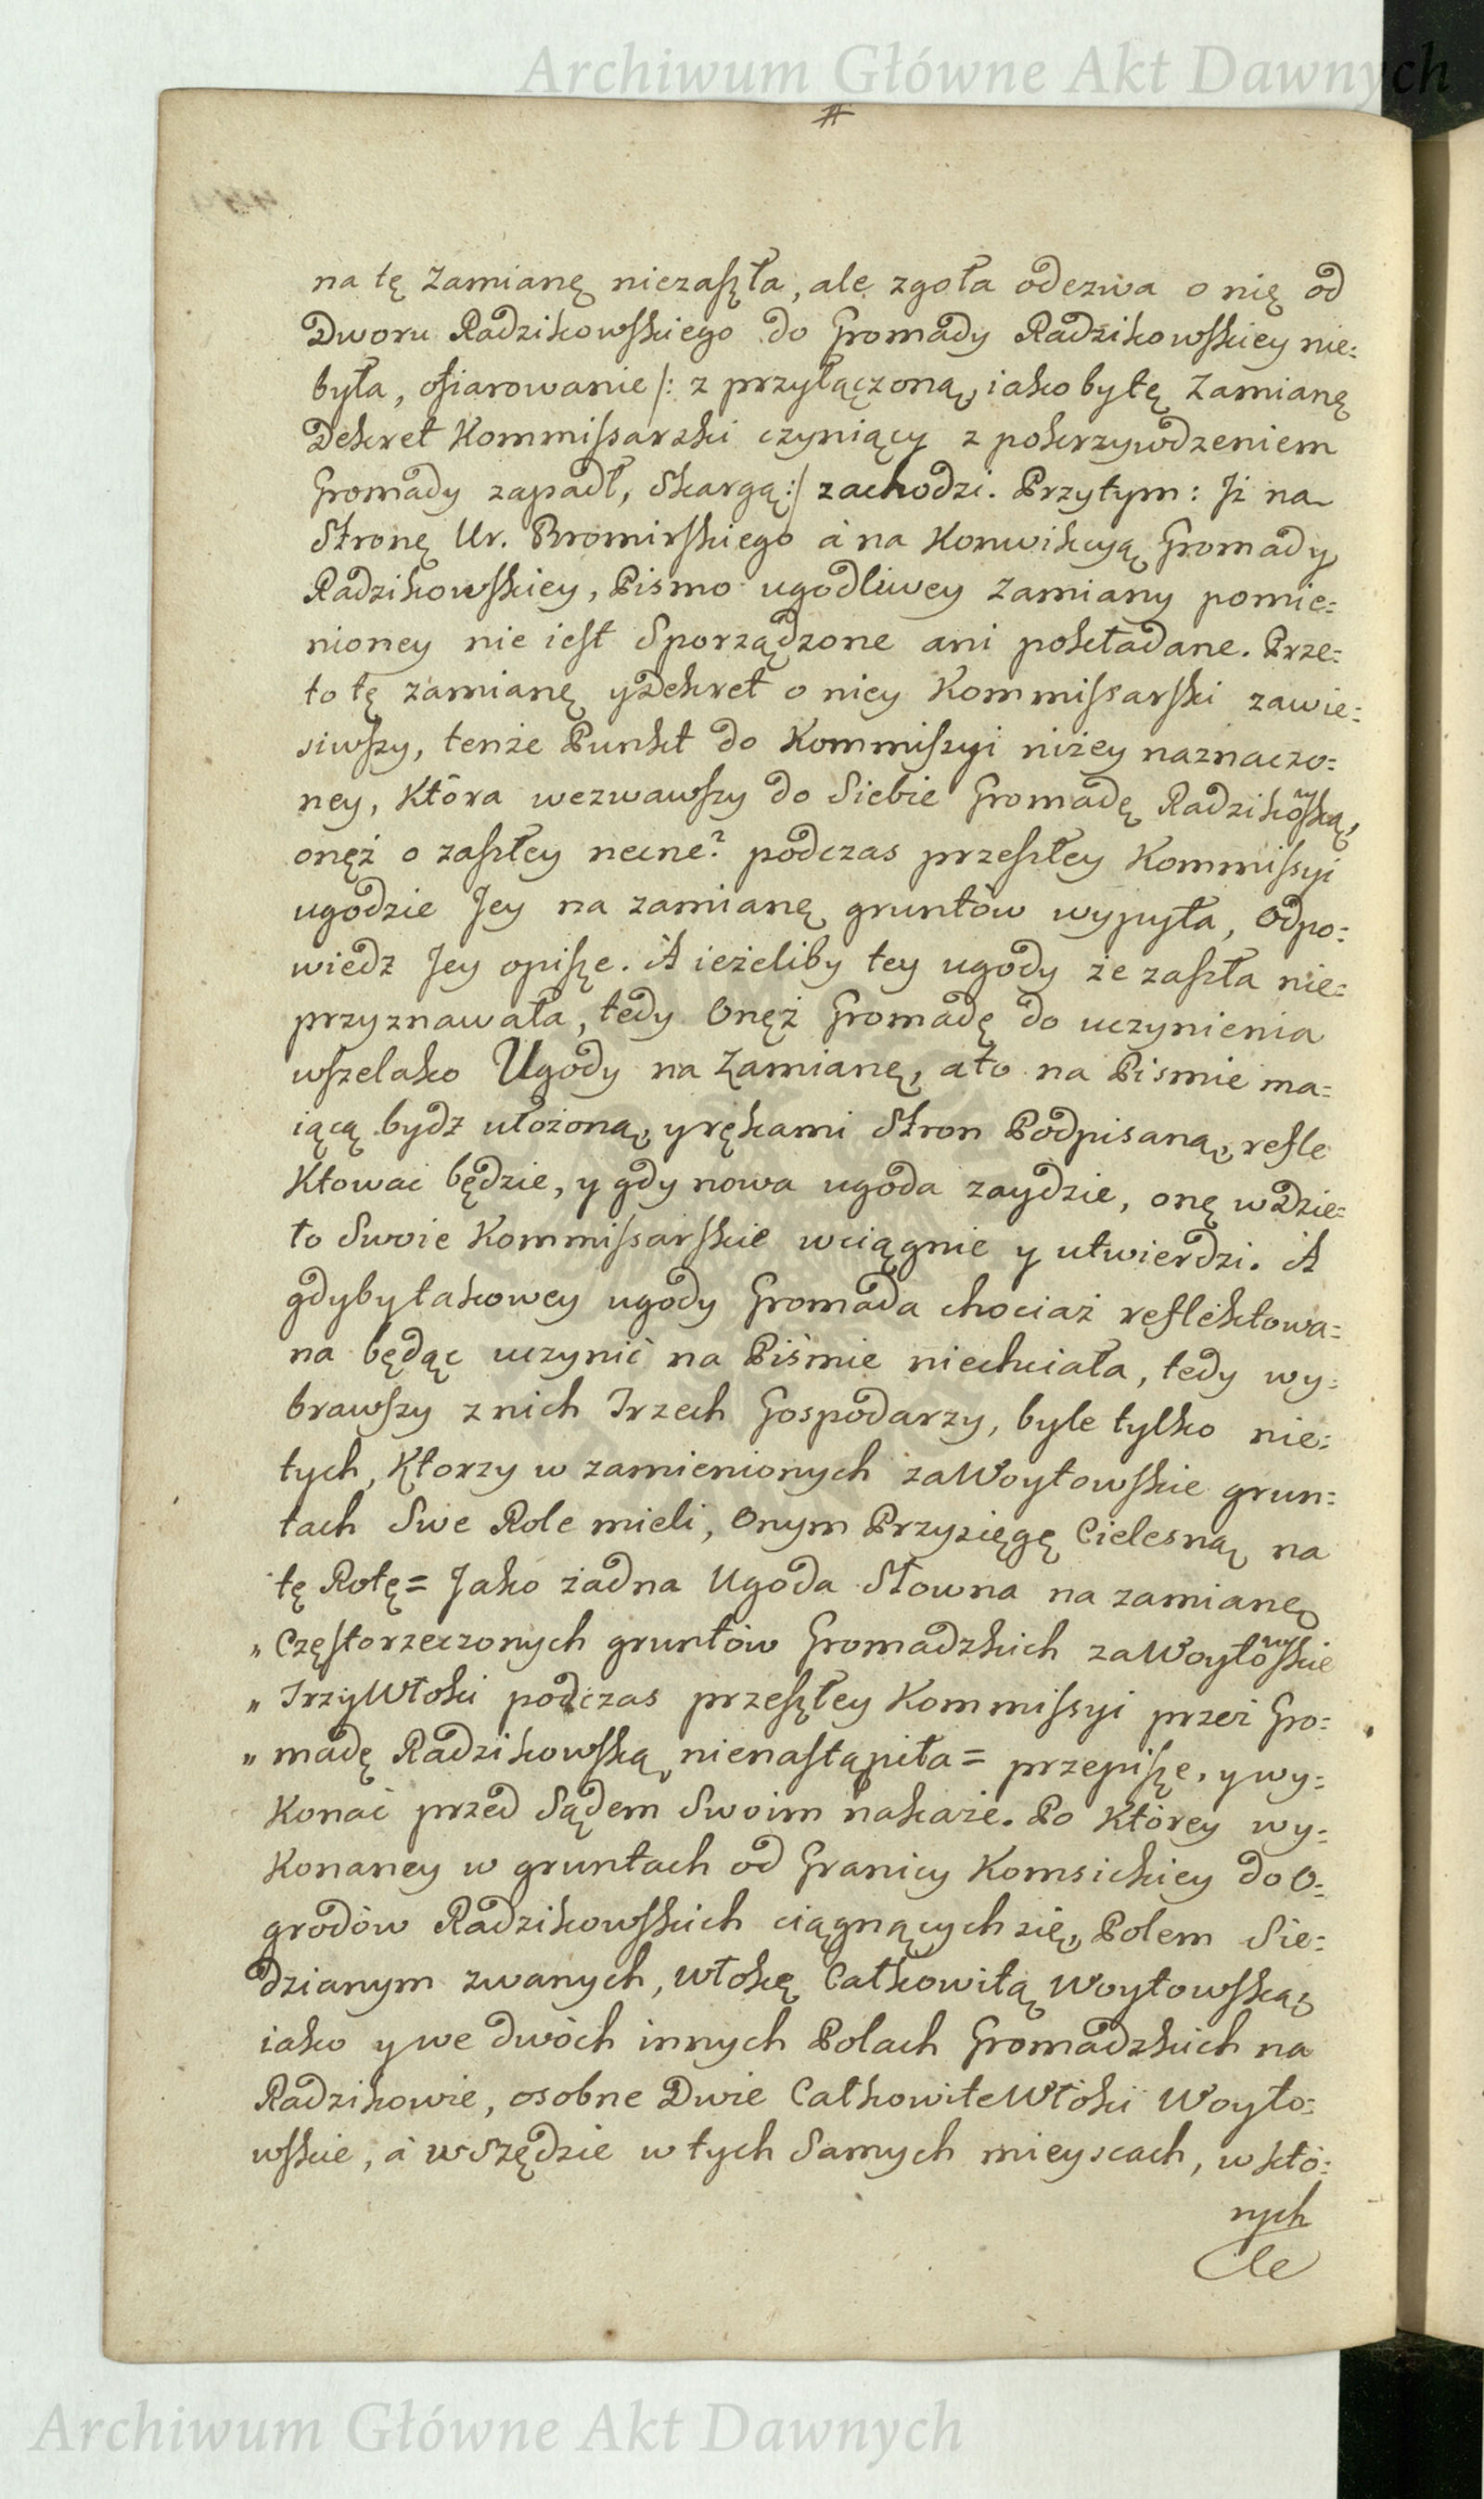 Archiwum Główne Akt Dawnych
#
na tę Zamianę niezaszła, ale zgoła odezwa o nię od
Dworu Radzikowskiego do Gromady Radzikowskiey nie=
była, ofiarowanie /: z przyłączoną, iakoby tę Zamianę
Dekret Kommissarski czyniący z pokrzywdzeniem
Gromady zapadł, Skargą :/ zachodzi. Przytym: Jż na
Stronę Ur. Bromirskiego á na Konwikcyą Gromady
Radzikowskiey, Pismo ugodliwey Zamiany pomie=
nioney nie iest Sporządzone ani pokładane. Prze=
to tę zamianę y Dekret o niey Kommissarski zawie=
siwszy, tenże Punkt do Kommiszyi niżey naznaczo=
ney, Która wezwawszy do Siebie Gromadę Radzikowską,
onęż o zaszłey necne? podczas przeszłey Kommissyi
ugodzie Jey na zamianę gruntów wypyta, Odpo=
wiedz Jey opisze. A ieżeliby tey ugody że zaszła nie=
przyznawała, tedy Onęż Gromadę do uczynienia
wszelako Ugody na Zamianę, a to na Pismie ma=
iącą bydz ułożoną, y rękami Stron Podpisaną, refle
Ktować będzie, y gdy nowa ugoda zaydzie, onę w Dzie=
ło Swoie Kommissarskie wciągnie y utwierdzi. A
gdyby takowey ugody Gromada chociaż reflektowa=
na będąc uczynić na Piśmie niechciała, tedy wy=
brawszy z nich Trzech Gospodarzy, byle tylko nie=
tych, Którzy w zamienionych za Woytowskie grun=
tach Swe Role mieli, Onym Przysięgę Cielesną na
tę Rotę = Jako żadna Ugoda Słowna na zamianę
„ Częstorzeczonych gruntów Gromadzkich za Woytowskie
„ Trzy Włoki podczas przeszłey Kommissyi przez Gro=
„ madę Radzikowską nienastąpiła = przepisze, y wy=
Konać przed Sądem Swoim nakaże. Po Którey wy=
Konaney w gruntach od Granicy Komsickiey do O=
grodów Radzikowskich ciągnących się, Polem Sie=
dzianym zwanych, Włokę Całkowitą Woytowską,
iako y we dwóch innych Polach Gromadzkich na
Radzikowie, osobne Dwie Całkowite Włóki Woyto=
wskie, á wszędzie w tych Samych mieyscach, w któ=
rych
Archiwum Główne Akt Dawnych